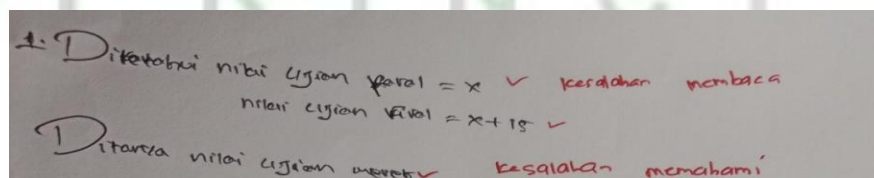 1. Diketahui nilai ujian Farel = x ✓ kesalahan membaca
nilai ujian Rival = x + 15 ✓
Ditanya nilai ujian mereka ✓ kesalahan memahami